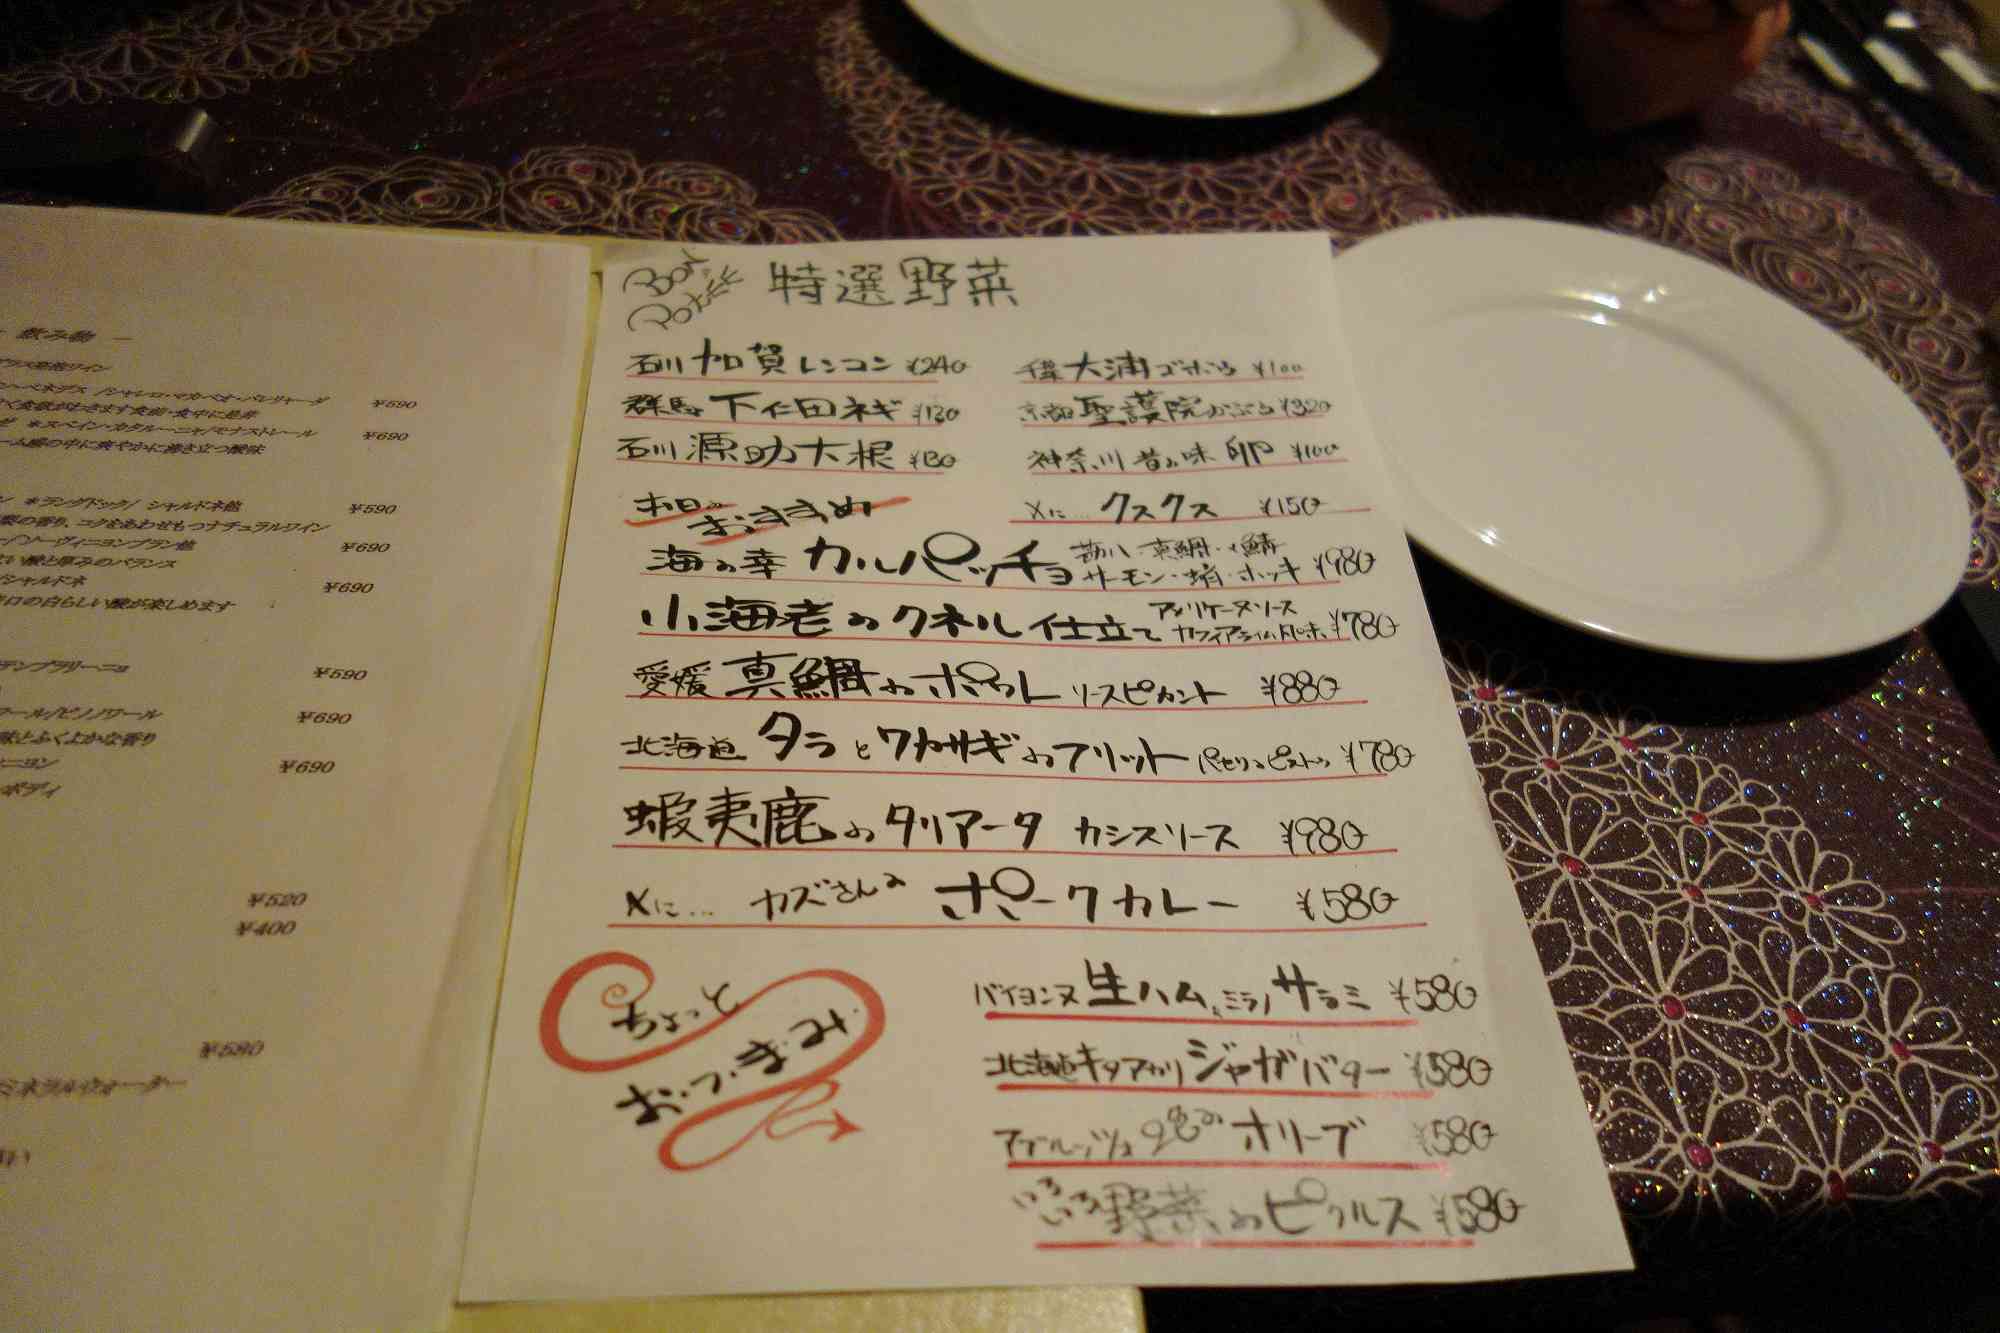 飲み物 ―
¥590
¥690
ン ＊ラングドック/ シャルドネ他 ¥590
梨の香り、コクをあわせもつナチュラルワイン
ー/ソーヴィニヨンブラン他 ¥690
い酸と厚みのバランス
/シャルドネ ¥690
辛口の白らしい酸が楽しめます
テンプラリーニョ ¥590
ワール/ピノノワール ¥690
味とふくよかな香り
ーニヨン ¥690
ボディ
¥520
¥400
¥580
ミネラルウォーター
特選野菜
石川 加賀レンコン ¥240
群馬 下仁田ネギ ¥130
石川 源助大根 ¥130
大浦ゴボウ ¥100
京都 聖護院かぶら ¥320
神奈川 昔の味 卵 ¥100
〆に… クスクス ¥150
本日のおすすめ
海の幸 カルパッチョ 勘八・真鯛・〆鯖 サーモン・蛸・ホッキ ¥980
小海老のクネル仕立て アメリケーヌソース ¥780
愛媛 真鯛のポワレ ソースピカント ¥880
北海道 タラとワカサギのフリット パセリのピストゥ ¥780
蝦夷鹿のタリアータ カシスソース ¥980
〆に… カズさんの ポークカレー ¥580
ちょっと
お・つ・ま・み・
バイヨンヌ 生ハム、ミラノ サラミ ¥580
北海道キタアカリ ジャガバター ¥580
アブルッツォ 2色の オリーブ ¥580
いろいろ野菜のピクルス ¥580